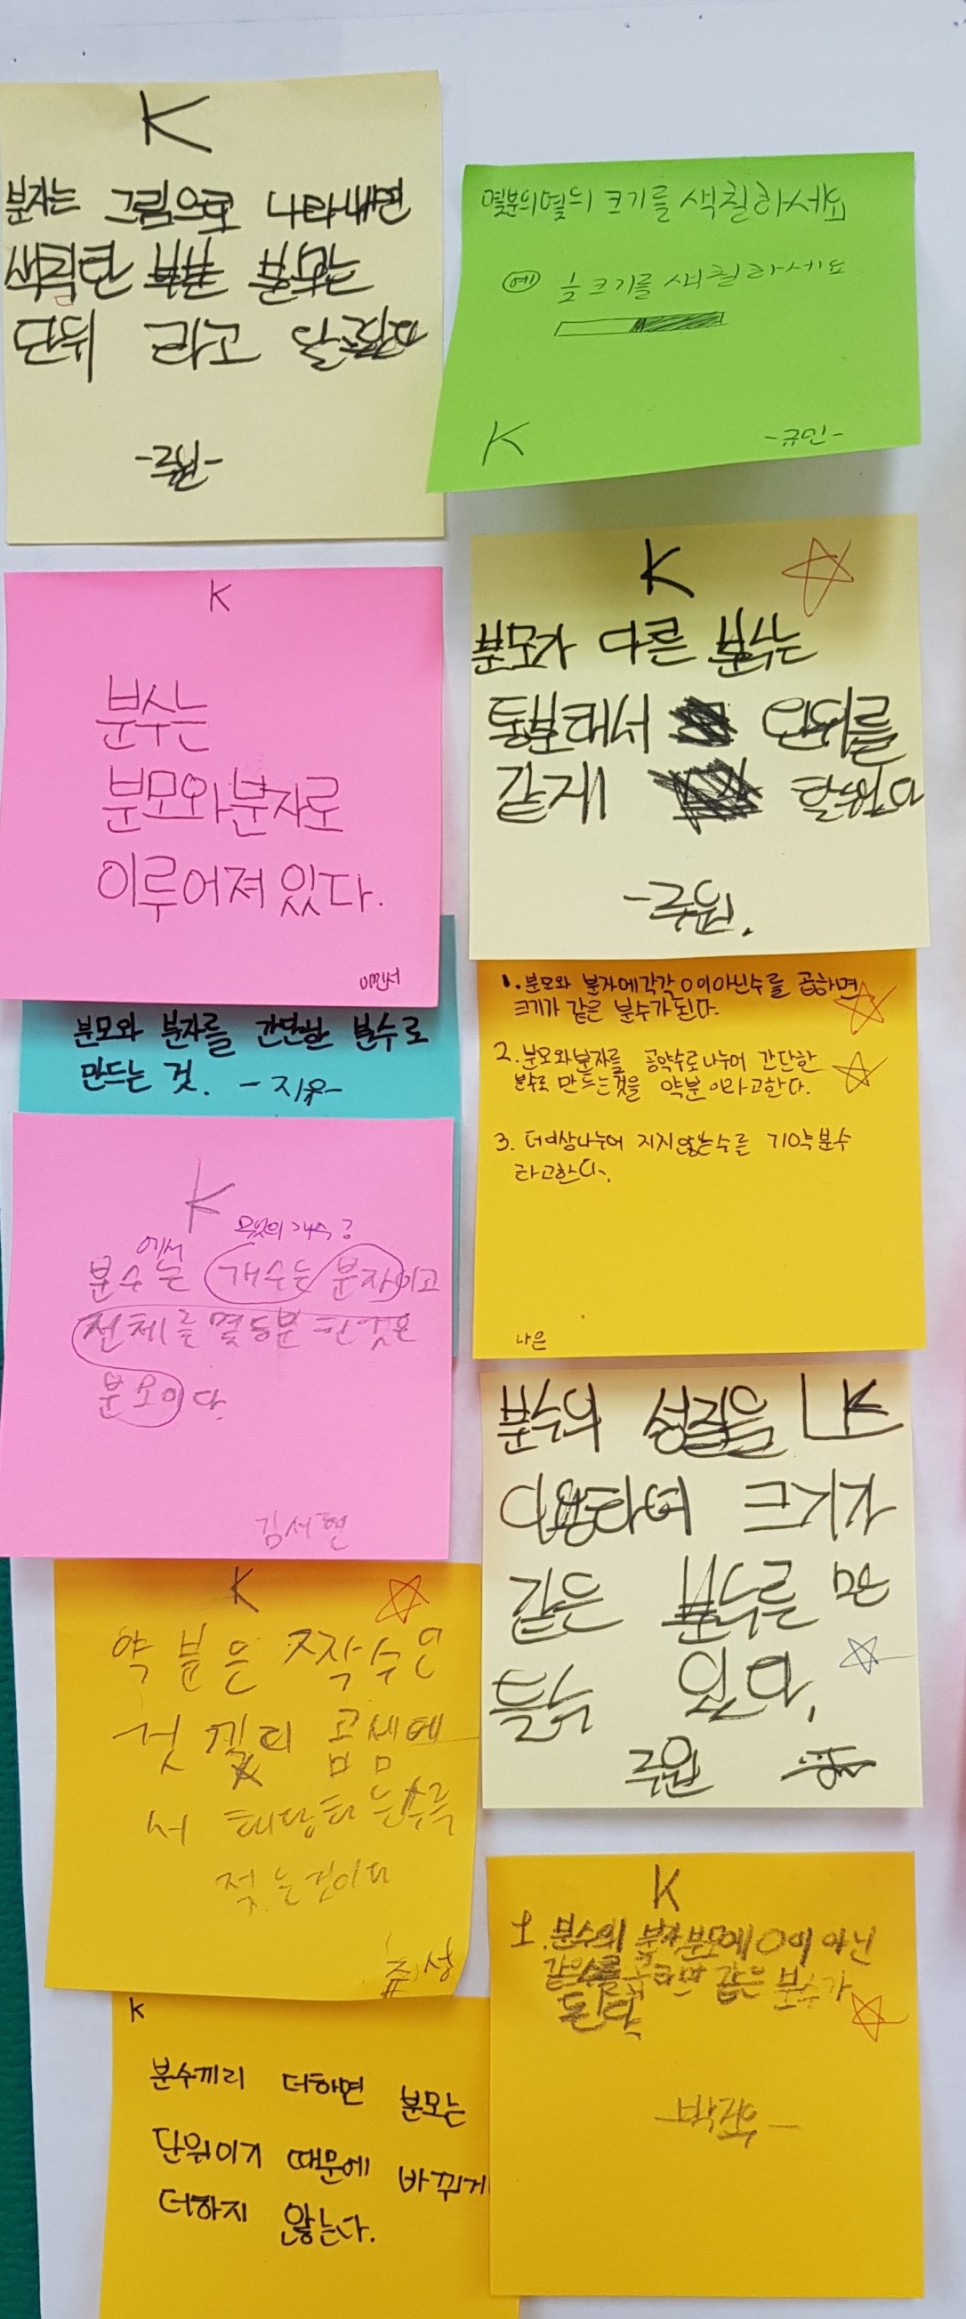 K
분자는 그림으로 나타내면
색칙된 부분 분모는
단위 라고 알
-주원-
몇분의몇의 크기를 색칠하세요
예 ½ 크기를 색칠하세요
K
-규민-
K
분수는
분모와분자로
이루어져 있다.
이민서
K
분모가 다른 분수는
통분해서 단위를
같게 할수있다
-주원.
분모와 분자를 간단한 분수로
만드는 것. -지우-
1. 분모와 분자에각각 0이아닌수를 곱하면
크기가 같은 분수가된다.
2. 분모와분자를 공약수로나누어 간단한
분수로 만드는것을 약분이라고한다.
3. 더이상나누어 지지않는수를 기약분수
라고한다.
나은
K
무엇의 개수?
에서
분수는 개수는 분자이고
전체를 몇등분 한것은
분모이다.
김서현
분수의 성질을 K
이용하여 크기가
같은 분수를 만
들수 있다.
주원
K
약분은 작수인
것 곱셈에
서 해당하는수를
적는것이다
K
1. 분수의 분자분모에 0이 아닌
같은수를 곱하면 같은 분수가
된다
K
분수끼리 더하면 분모는
단위이기 때문에 바뀌게
더하지 않는다.